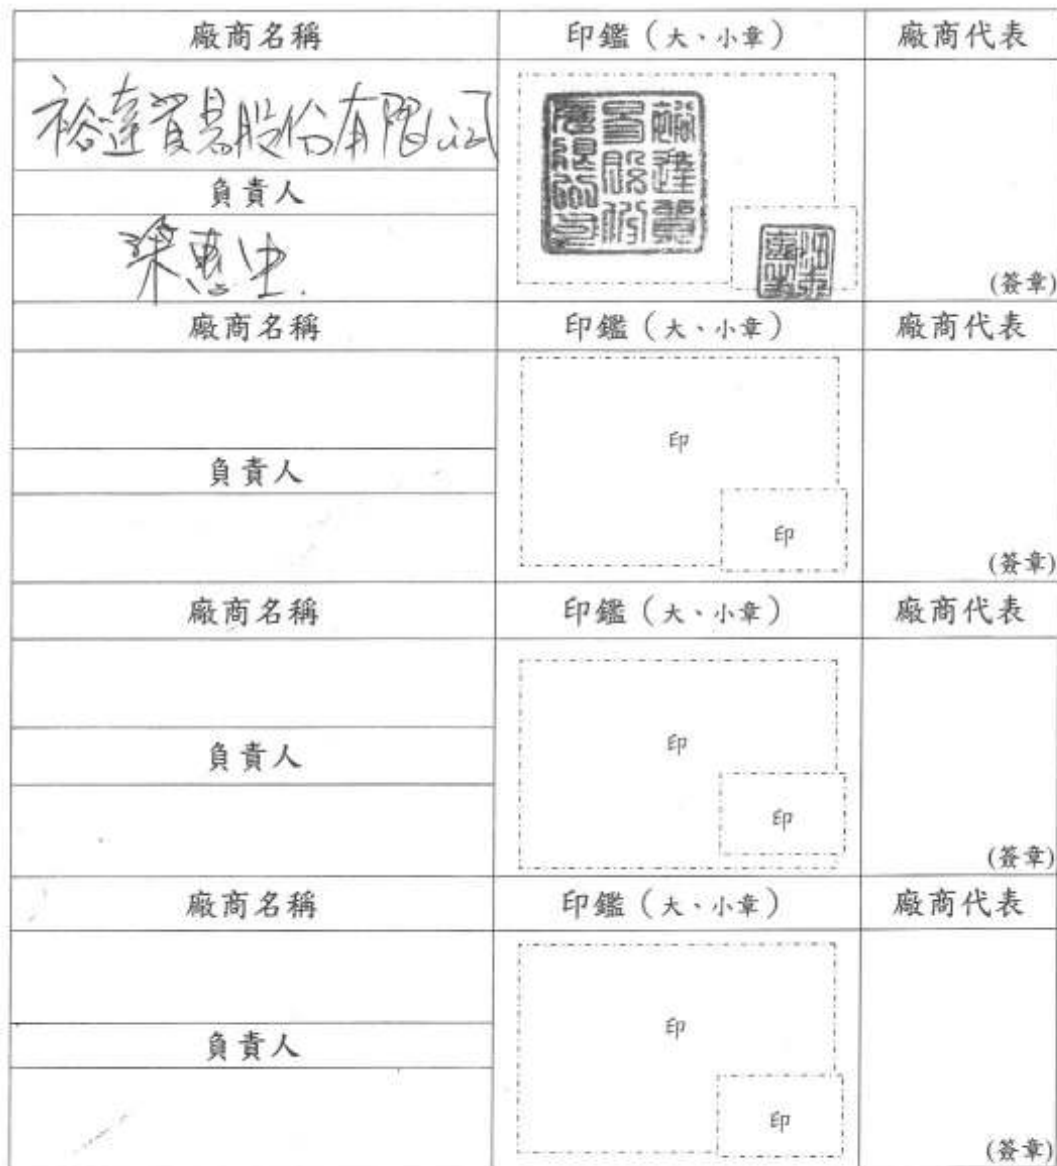 廠商名稱 印鑑（大、小章） 廠商代表
裕達貿易股份有限公司
裕達貿易股份有限公司
負責人
梁惠生
(簽章)
廠商名稱 印鑑（大、小章） 廠商代表
印
負責人
印
(簽章)
廠商名稱 印鑑（大、小章） 廠商代表
印
負責人
印
(簽章)
廠商名稱 印鑑（大、小章） 廠商代表
印
負責人
印
(簽章)